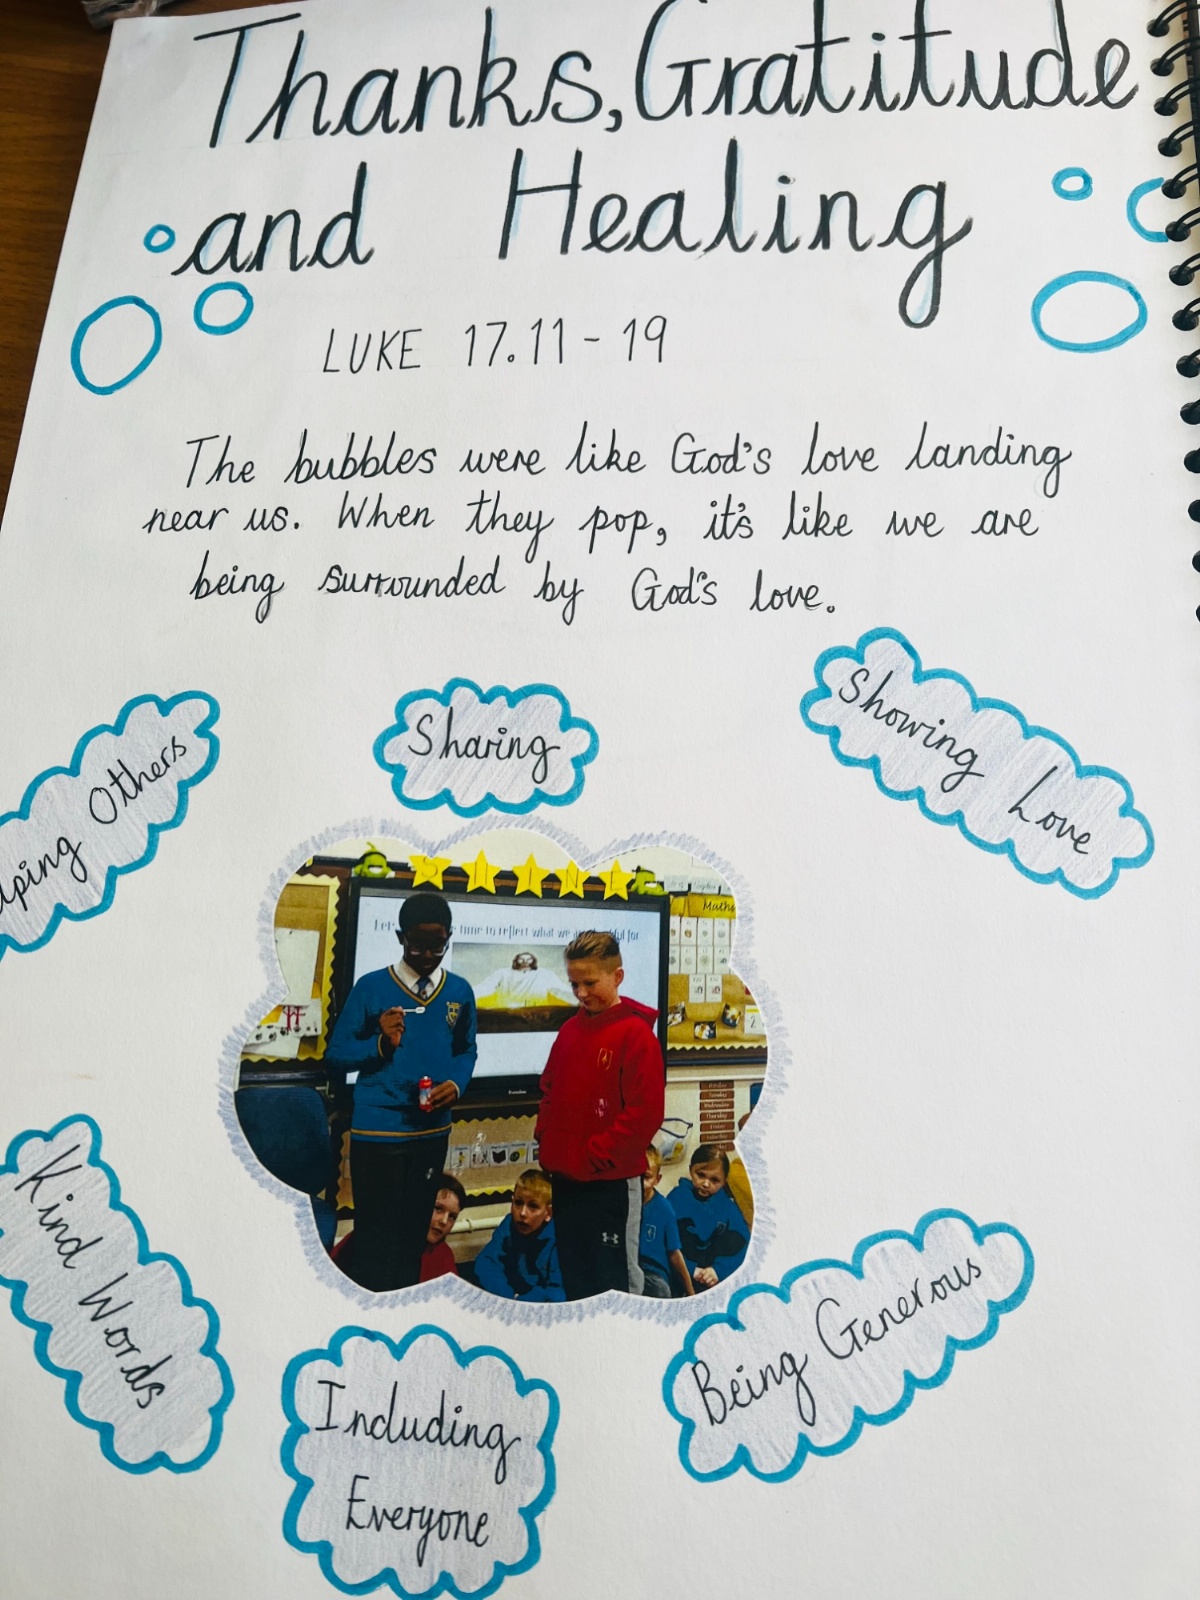 Thanks, Gratitude
and Healing
LUKE 17.11 - 19
The bubbles were like God's love landing
near us. When they pop, it's like we are
being surrounded by God's love.
Others
Sharing
Showing Love
SHINE
time to reflect what we
Maths
Kind Words
Being Generous
Including
Everyone